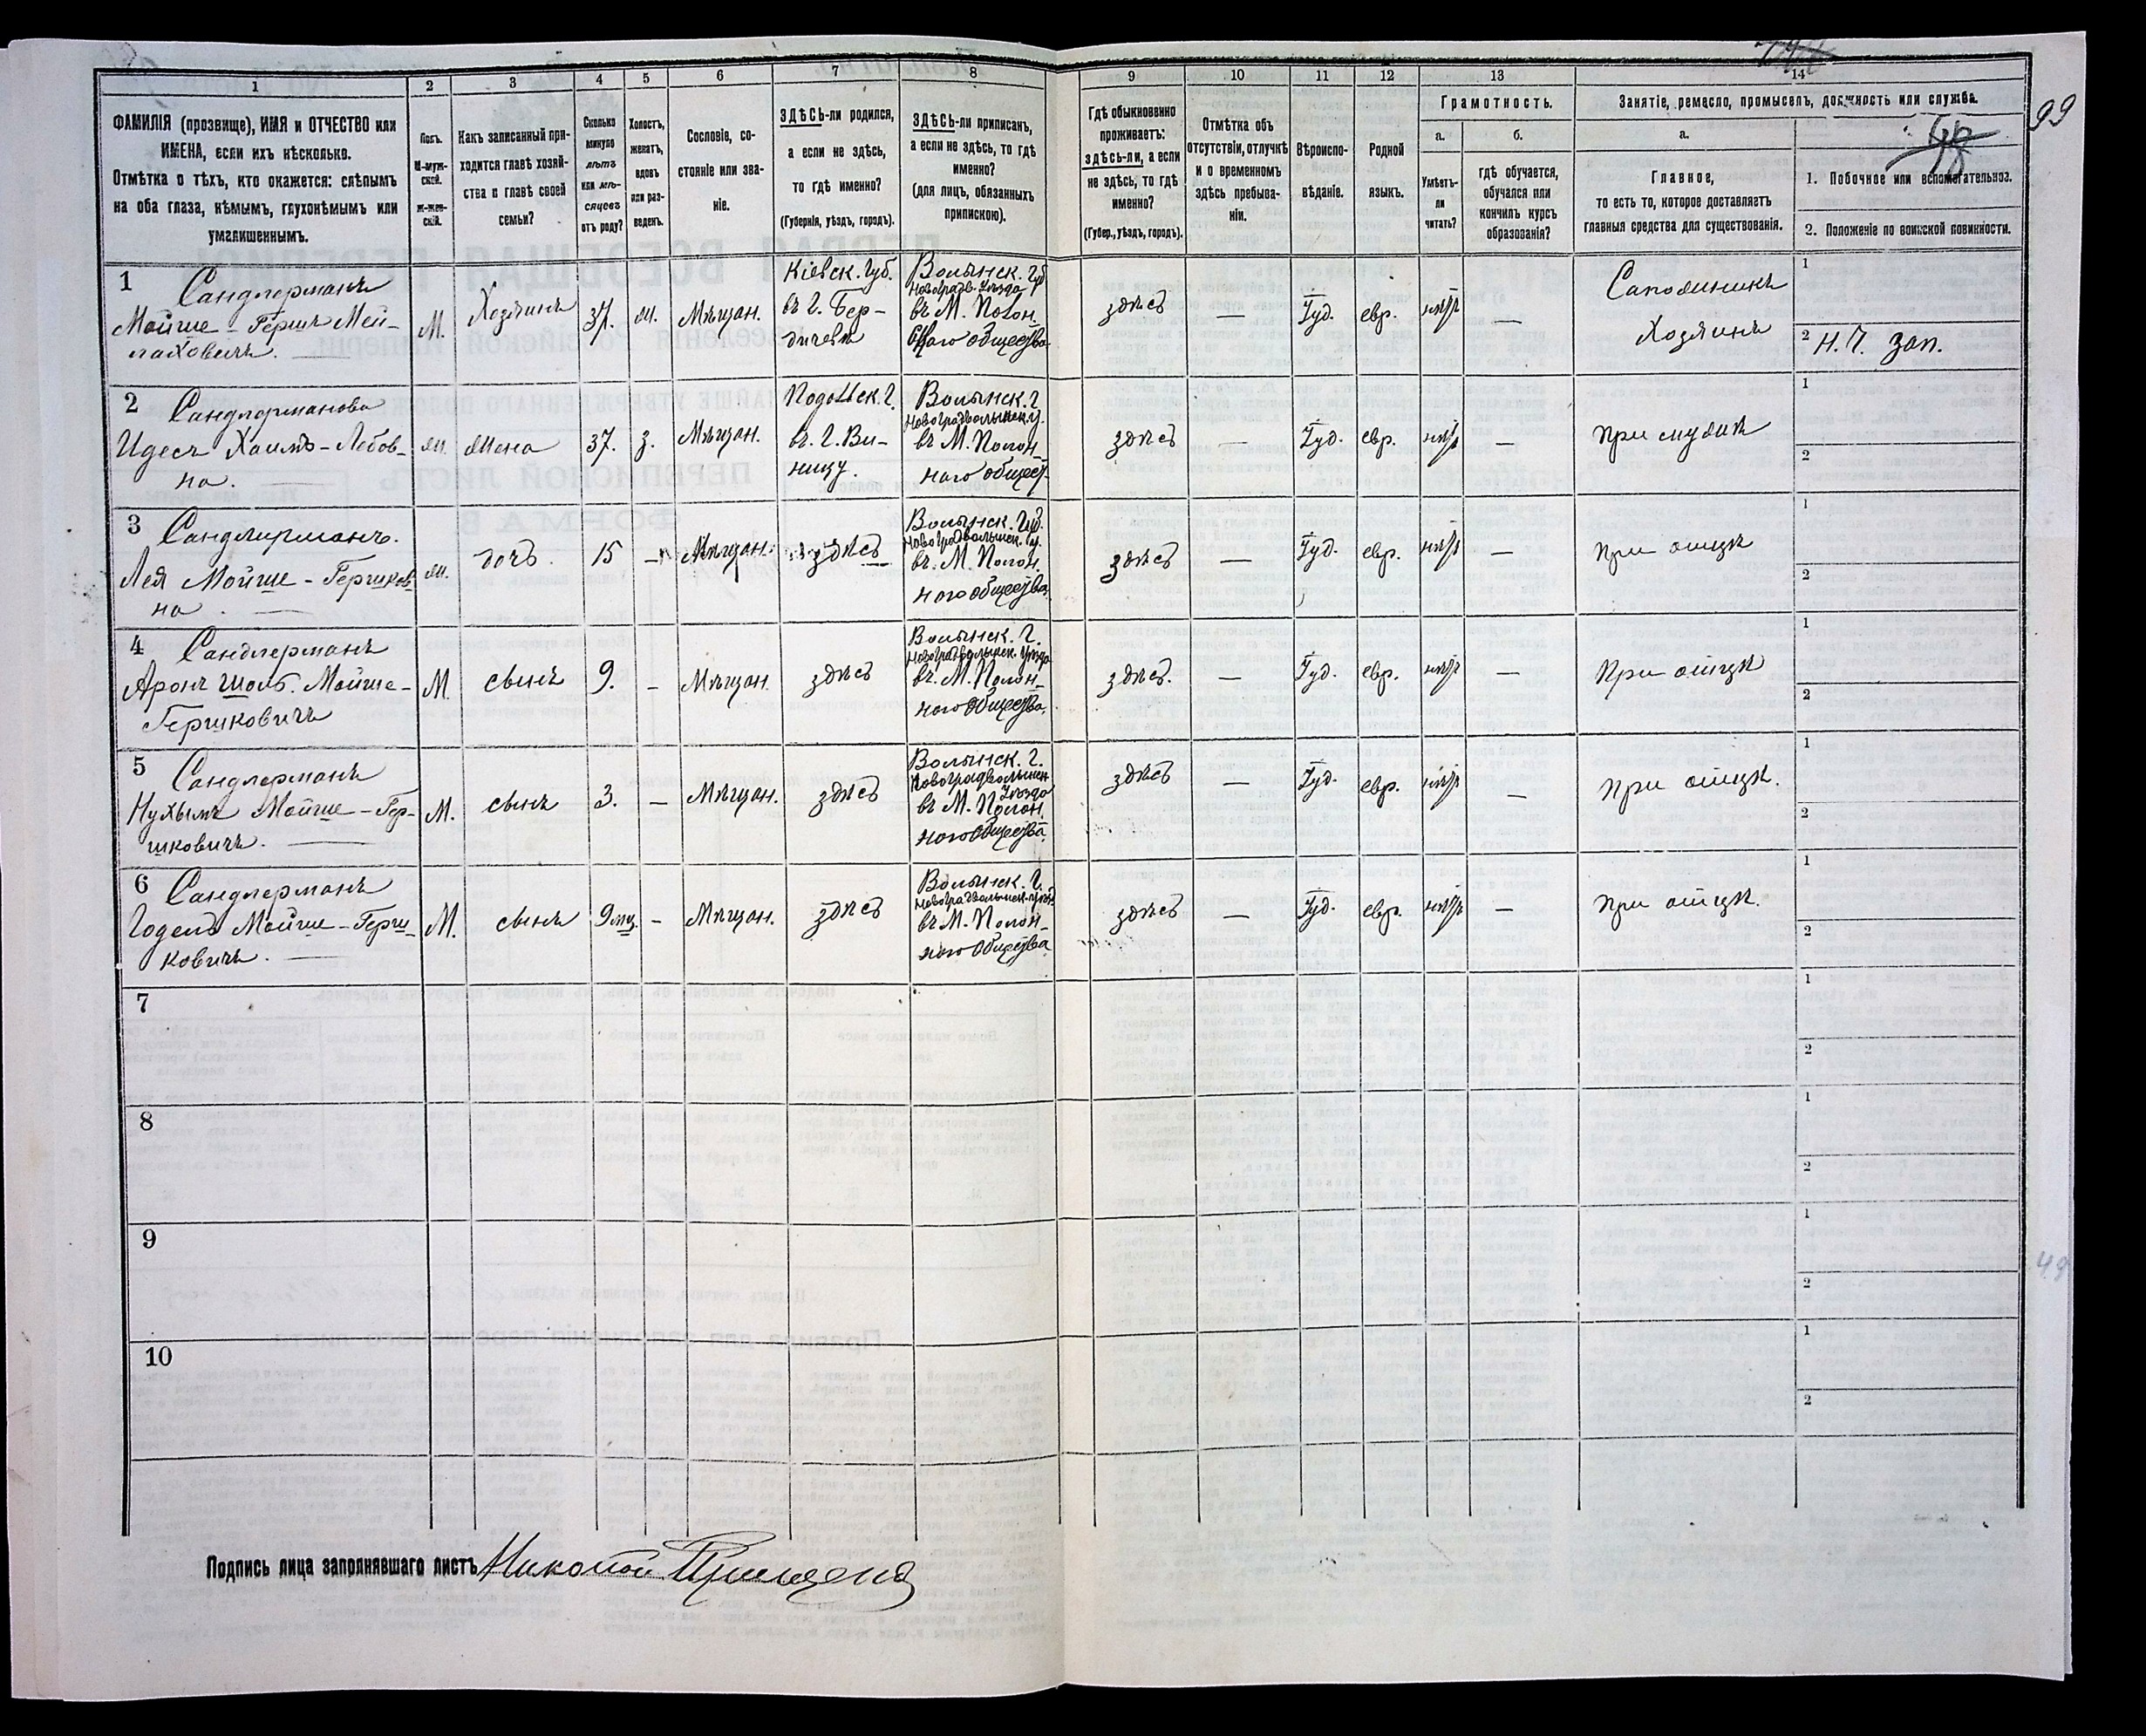 99
1 2 3 4 5 6 7 8 9 10 11 12 13 14
ФАМИЛІЯ (прозвище), ИМЯ и ОТЧЕСТВО или
ИМЕНА, если ихъ нѣсколько.
Отмѣтка о тѣхъ, кто окажется: слѣпымъ
на оба глаза, нѣмымъ, глухонѣмымъ или
умалишеннымъ.
Полъ.
М-муж-
ской.
ж-жен-
скій.
Какъ записанный при-
ходится главѣ хозяй-
ства и главѣ своей
семьи?
Сколько
минуло
лѣтъ
или мѣ-
сяцевъ
отъ роду?
Холостъ,
женатъ,
вдовъ
или раз-
веденъ.
Сословіе, со-
стояніе или зва-
ніе.
ЗДѢСЬ-ли родился,
а если не здѣсь,
то гдѣ именно?
(Губернія, уѣздъ, городъ).
ЗДѢСЬ-ли приписанъ,
а если не здѣсь, то гдѣ
именно?
(для лицъ, обязанныхъ
припискою).
Гдѣ обыкновенно
проживаетъ:
здѣсь-ли, а если
не здѣсь, то гдѣ
именно?
(Губер., уѣздъ, городъ).
Отмѣтка объ
отсутствіи, отлучкѣ
и о временномъ
здѣсь пребыва-
ніи.
Вѣроиспо-
вѣданіе.
Родной
языкъ.
Грамотность.
а.
Умѣетъ-
ли
читать?
б.
гдѣ обучается,
обучался или
кончилъ курсъ
образованія?
Занятіе, ремесло, промыселъ, должность или служба.
а.
Главное,
то есть то, которое доставляетъ
главныя средства для существованія.
1. Побочное или вспомогательное.
2. Положеніе по воинской повинности.
1
Сандлерманъ
Мойше-Гершъ Мей-
лаховичъ.
М.
Хозяинъ
37.
ж.
Мѣщан.
Кіевск. Губ.
въ г. Бер-
дичевѣ
Волынск. Губ
Новоградв. Уѣзда
въ М. Полон.
общества
здѣсь
—
Іуд.
евр.
нѣтъ
—
Сапожникъ
Хозяинъ
1
2 Н. Ч. Зап.
2
Сандлерманова
Идесъ Хаимъ-Лебов-
на.
ж.
жена
37.
з.
Мѣщан.
Подольск. Г.
въ. Г. Ви-
ницу.
Волынск. Г
Новоградволынск. у.
въ М. Полон-
ного общест.
здѣсь
—
Іуд.
евр.
нѣтъ
—
при мужѣ
1
2
3
Сандлерманъ.
Лея Мойше-Гершков-
на.
ж.
дочь.
15
—
Мѣщан.
здѣсь
Волынск. Губ.
Новоградволынск. у.
въ. М. Полон.
ного общества.
здѣсь
—
Іуд.
евр.
нѣтъ
—
при отцѣ
1
2
4
Сандлерманъ
Аронъ Шоль. Мойше-
Гершковичъ
М.
сынъ
9.
-
Мѣщан.
здѣсь
Волынск. Г.
Новоградволынск. Уѣзда
въ. М. Полон-
ного Общества.
здѣсь.
—
Іуд.
евр.
нѣтъ
—
При отцѣ
1
2
5
Сандлерманъ
Нухымъ Мойше-Гер-
шковичъ.
М.
сынъ
3.
-
Мѣщан.
здѣсь
Волынск. Г.
Новоградволынск.
Уѣзда
въ М. Полон.
ного Общества.
здѣсь
—
Іуд.
евр.
нѣтъ
—
при отцѣ.
1
2
6
Сандлерманъ
Годель Мойше-Герш-
ковичъ.
М.
сынъ
9 мц.
-
Мѣщан.
здѣсь
Волынск. Г.
Новоградволынск. уѣзд.
въ М. Полон-
ного Общества
здѣсь
—
Іуд.
евр.
нѣтъ
—
при отцѣ.
1
2
7
1
2
8
1
2
9
1
2
49
10
1
2
Подпись лица заполнявшаго листъ Николай